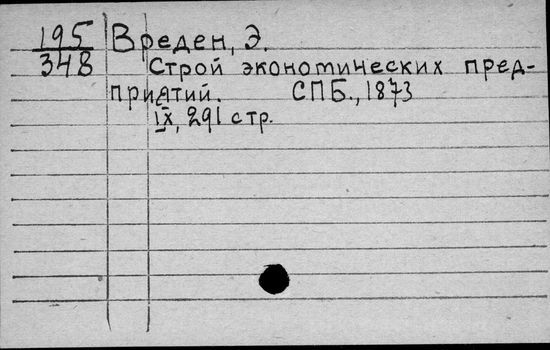 195 Вреден, Э.
348 Строй экономических пред-
приятий. СПБ., 1873
IX, 291 стр.